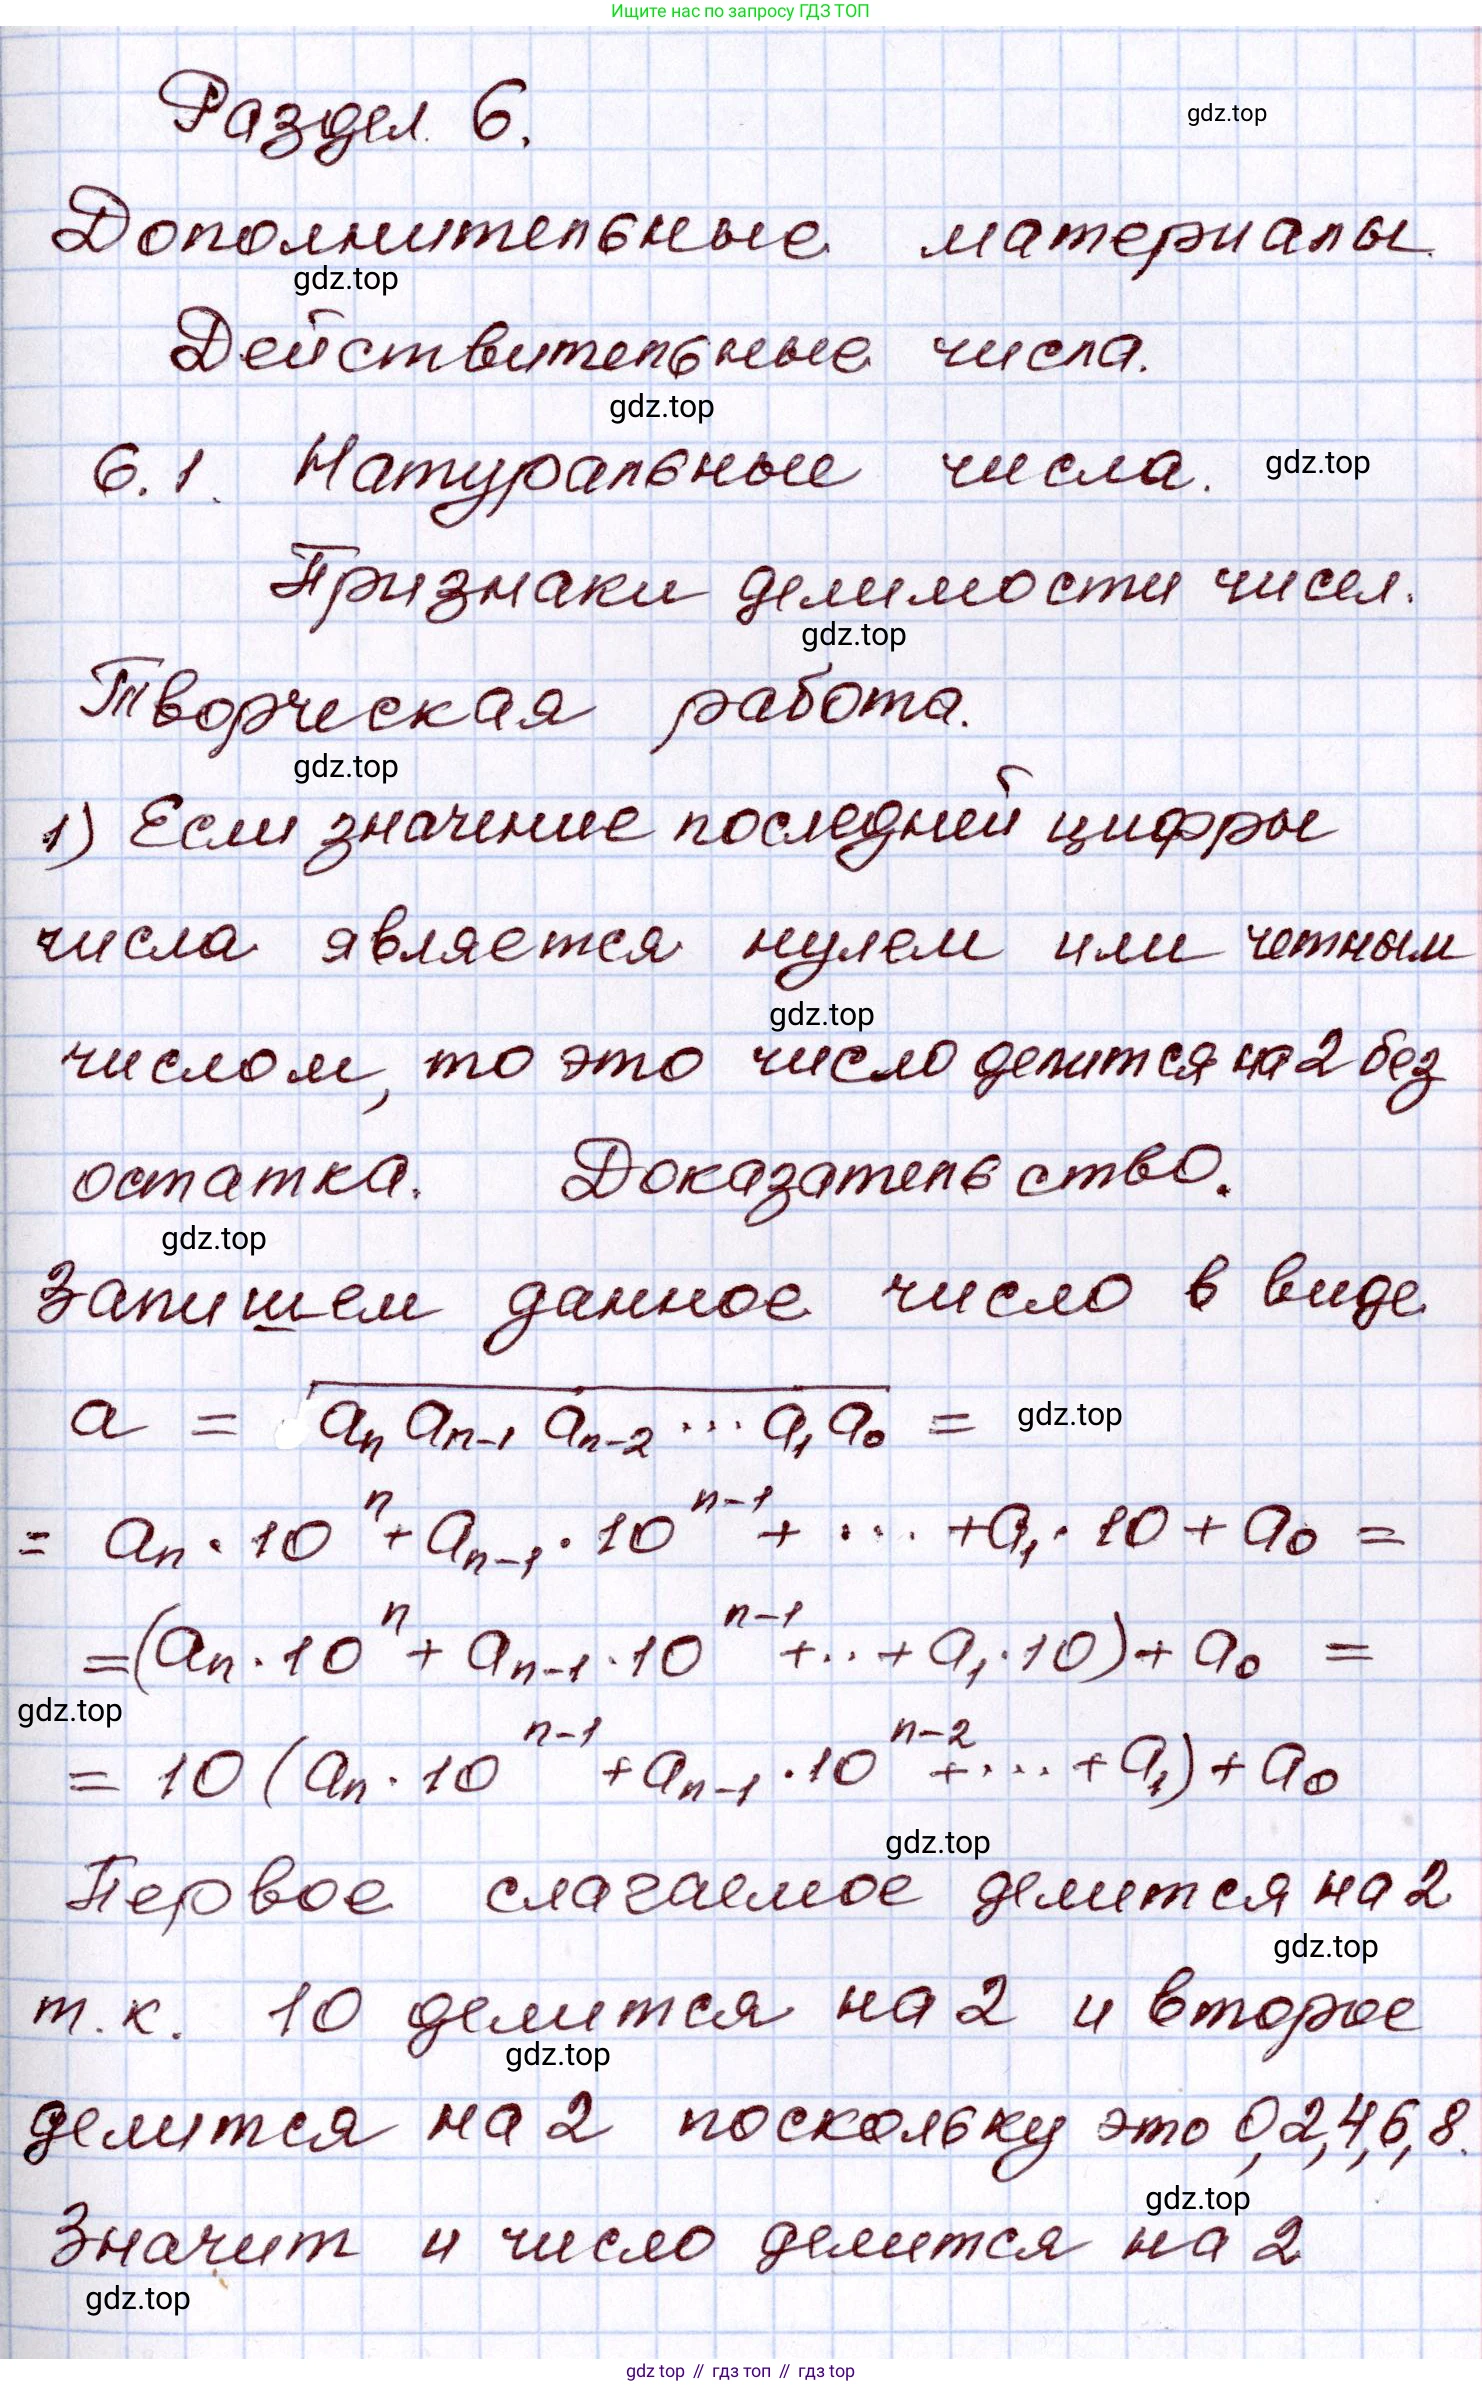 Ищите нас по запросу ГДЗ ТОП
Раздел 6.
gdz.top
Дополнительные материалы.
gdz.top
Действительные числа.
gdz.top
6.1. Натуральные числа.
gdz.top
Признаки делимости чисел.
gdz.top
Творческая работа.
gdz.top
1) Если значение последней цифры
числа является нулем или четным
gdz.top
числом, то это число делится на 2 без
остатка. Доказательство.
gdz.top
Запишем данное число в виде
a = \overline{a_n a_{n-1} a_{n-2} ... a_1 a_0} =
gdz.top
= a_n · 10^n + a_{n-1} · 10^{n-1} + ... + a_1 · 10 + a_0 =
= (a_n · 10^n + a_{n-1} · 10^{n-1} + .. + a_1 · 10) + a_0 =
gdz.top
= 10 (a_n · 10^{n-1} + a_{n-1} · 10^{n-2} + ... + a_1) + a_0
gdz.top
Первое слагаемое делится на 2
gdz.top
т.к. 10 делится на 2 и второе
gdz.top
делится на 2 поскольку это 0,2,4,6,8.
gdz.top
Значит и число делится на 2
gdz.top
gdz top // гдз топ // gdz top